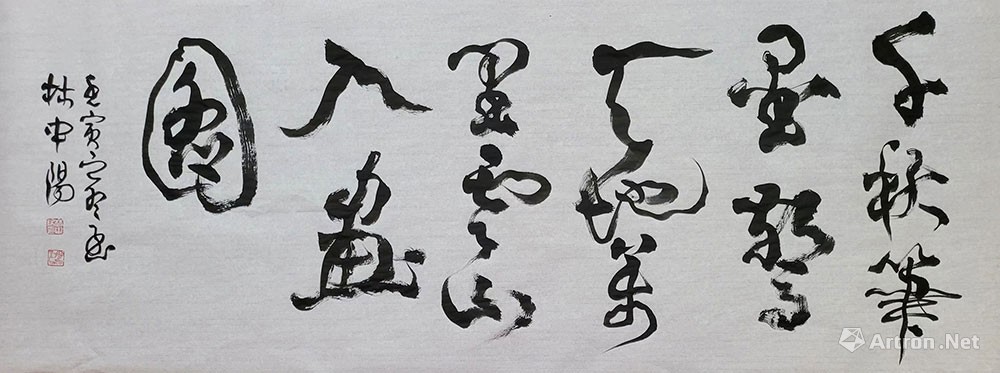 千秋筆
墨驚
天地萬
里雲山
入畫
圖
壬寅之冬書
林中陽
Artron.Net